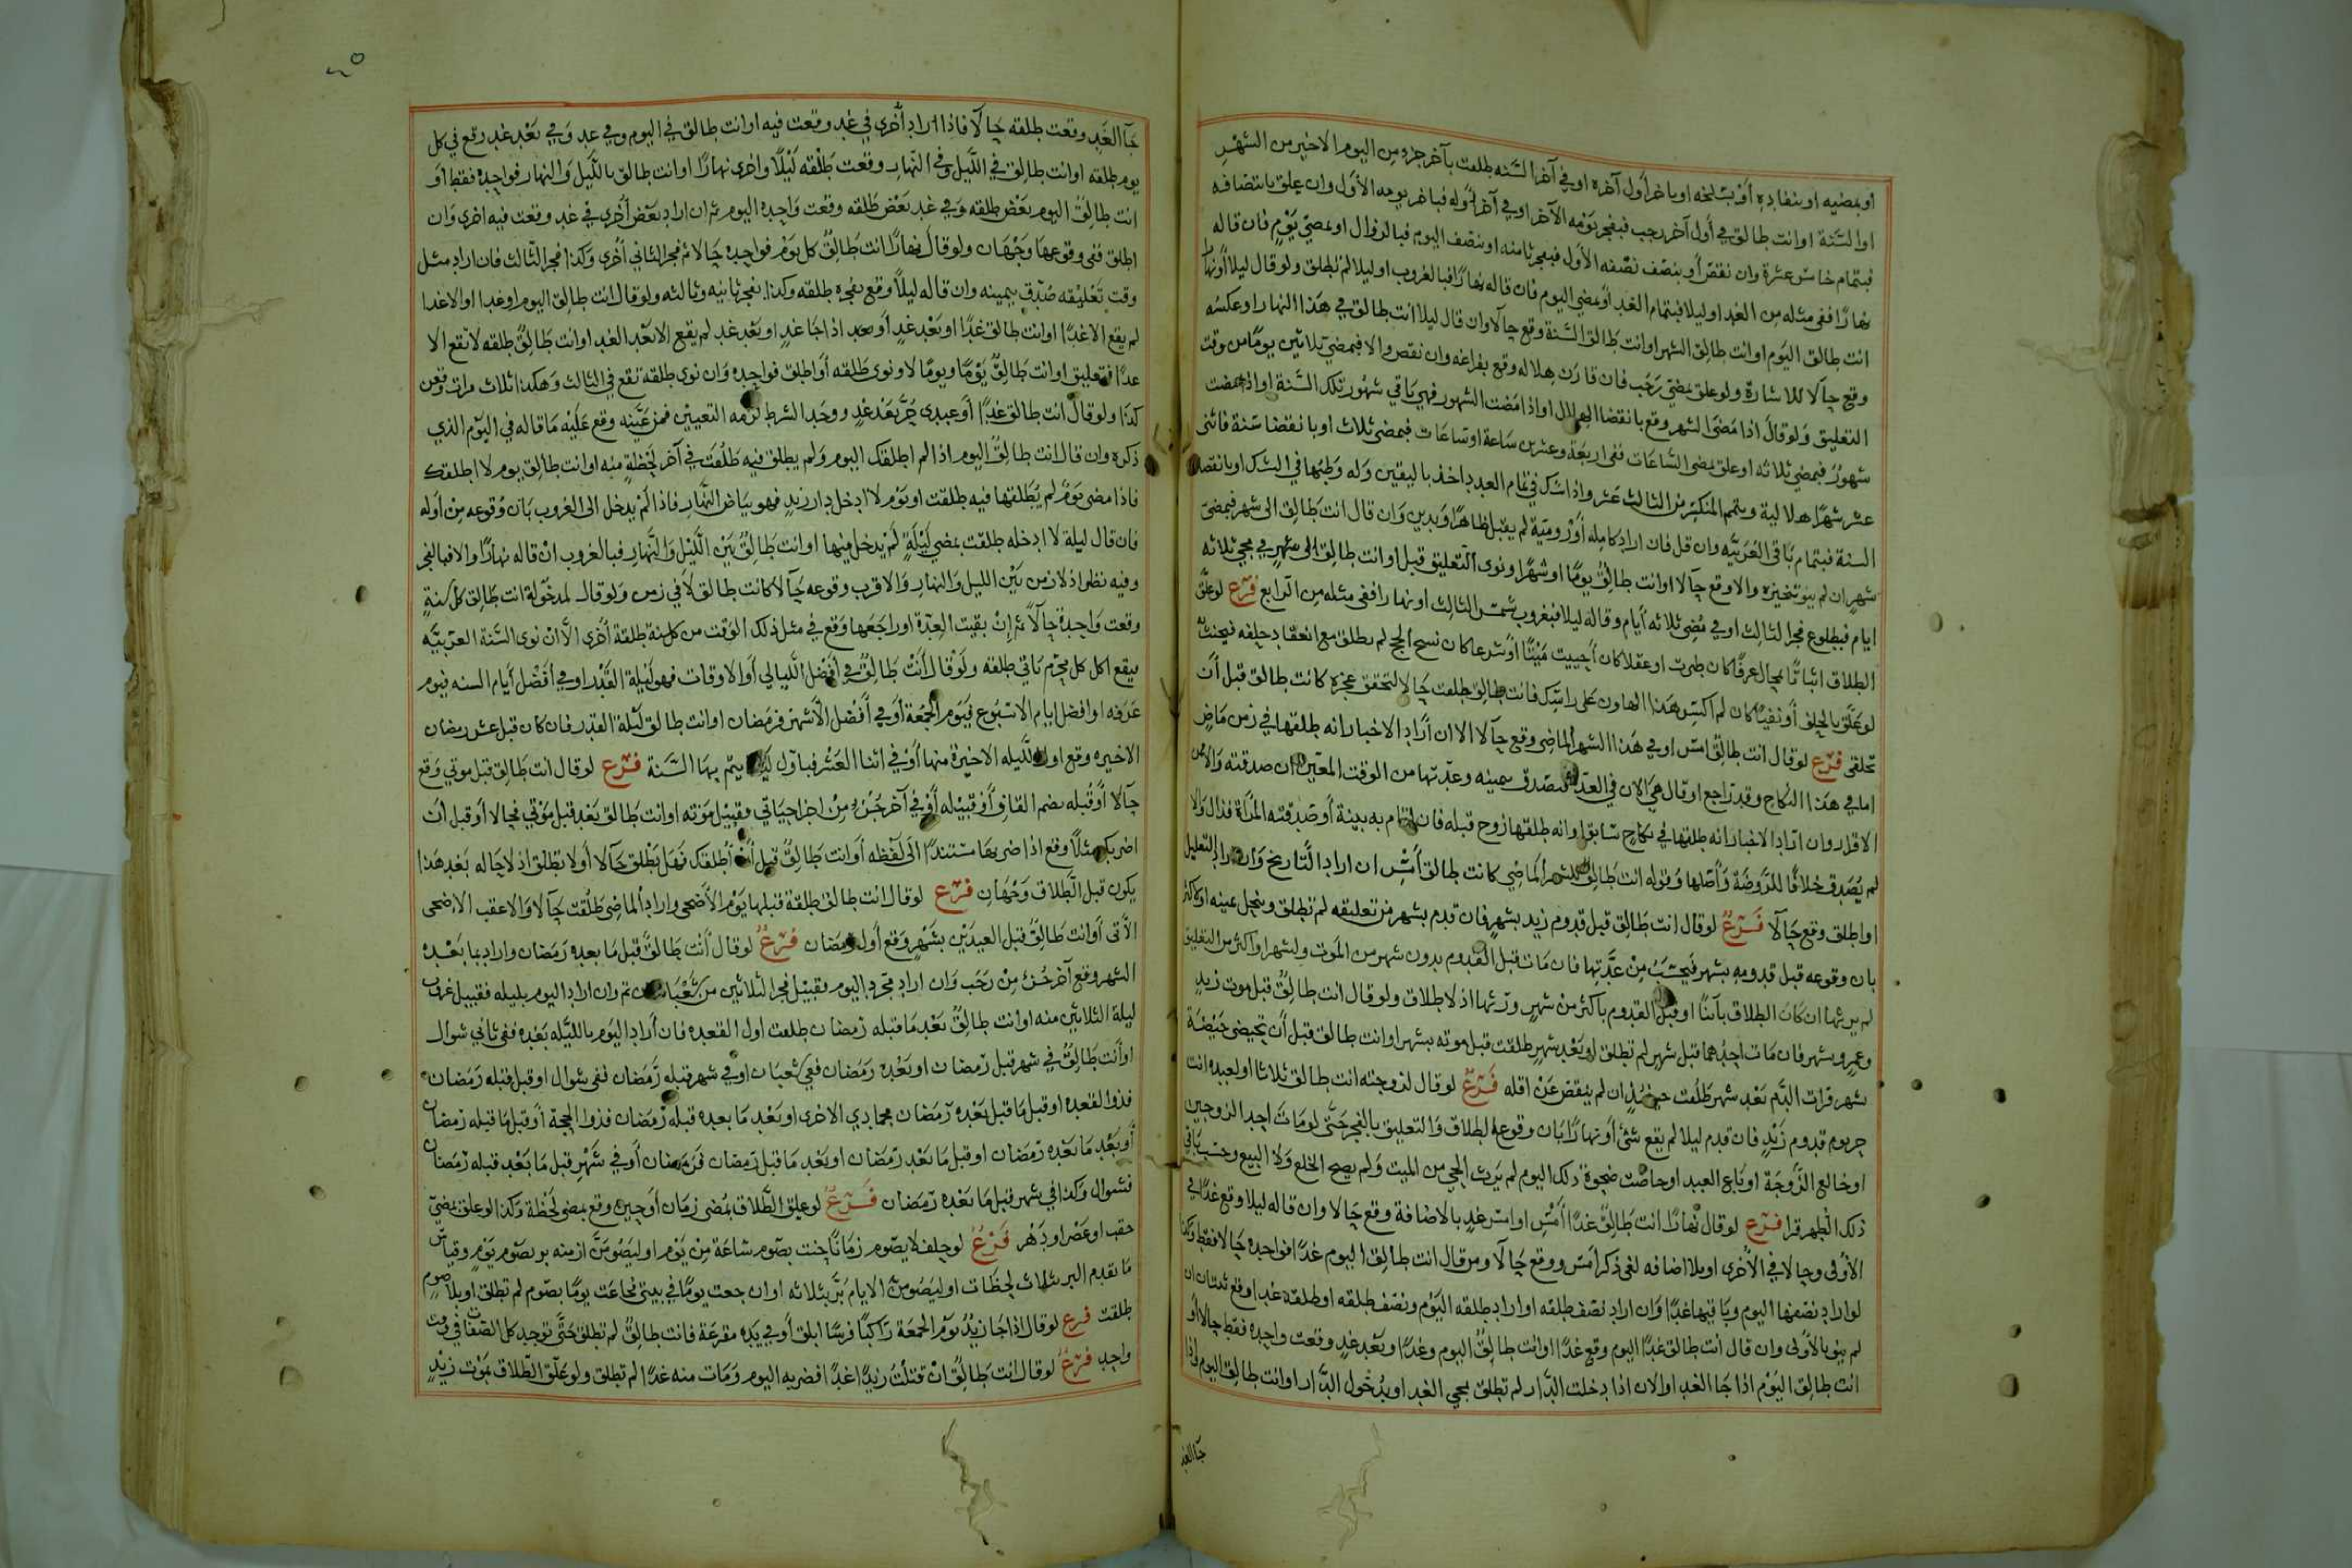 او بمضيه او بنفاده أو بسلخه او باخر أول آخره او في آخر السنه طلقت بآخر جزء من اليوم الاخير من الشهر
او السنة او انت طالق في أول آخر رجب فبفجر يومه الآخر او في آخر أوله فباخر يومه الأول وان علق بانتصافه
فبتمام خامس عشرة وان نقص أو بنصف نصفه الأول فبفجر ثامنه او بنصف اليوم فبالزوال او بمضي يوم فان قاله
نهارًا ففي مثله من الغد او ليلا فبتمام الغد او بمضي اليوم فان قاله نهارًا فبالغروب او ليلا لم تطلق ولو قال ليلا أو نهارا
انت طالق اليوم او انت طالق الشهر او انت طالق السنة وقع حالا وان قال ليلا انت طالق في هذا النهار او عكسه
وقع حالا للاشارة ولو علق بمضي رجب فان قارن هلاله وقع بفراغه وان نقص والا فبمضي ثلاثين يومًا من وقت
التعليق ولو قال اذا مضى الشهر وقع بانقضا الهلال او اذا مضت الشهور فهي باقي شهور تلك السنة او اذا مضت
شهور فبمضي ثلاثه او علق بمضي الساعات ففي اربعة وعشرين ساعة او ساعات فبمضي ثلاث او بانقضا سنة فاثنى
عشر شهرًا هلالية ويتمم المنكسر من الثالث عشر واذا شك في تمام العدد اخذ باليقين وله وطئها في الشك او بانقضا
السنة فبتمام باقي العربيه وان قل فان اراد كامله أو رومية لم يقبل ظاهرًا ويدين وان قال انت طالق الى شهر فبمضى
شهر ان لم ينو تنجيزه والا وقع حالا او انت طالق يومًا او شهرًا ونوى التعليق قبل او انت طالق الى شهر في مجي ثلاثه
ايام فبطلوع فجر الثالث او في مضى ثلاثه أيام وقاله ليلا فبغروب شمس الثالث او نهارا ففي مثله من الرابع فرع لو علق
الطلاق اثباتًا بمحال عرفًا كان طرت او عقلا كان أحييت ميتًا او شرعا كان نسخ الحج لم يطلق مع انعقاد حلفه فيحنث
لو علق بالحلف أو نفيًا كان لم اكسر هذا الهاون على راسك فانت طالق طلقت حالا لتحقق عجزه كانت طالق قبل أن
تخلقى فرع لو قال انت طالق امس او في هذا الشهر الماضي وقع حالا الا ان أراد الاخبار انه طلقها في زمن ماض
اما في هذا النكاح وقد راجع او قال هي الان في العدة فيصدق بيمينه وعدتها من الوقت المعين ان صدقته والا فمن
الاقرار وان أراد الاخبار انه طلقها في نكاح سابق او انه طلقها زوج قبله فان اقام به بينة أو صدقته المرأة فذاك والا
لم يصدق خلافًا للروضة وأصلها وقوله انت طالق للشهر الماضي كانت طالق أمس ان اراد التاريخ وان اراد التعليل
او اطلق وقع حالا فرع لو قال انت طالق قبل قدوم زيد بشهر فان قدم بشهر من تعليقه لم تطلق وينحل يمينه او باكثر
بان وقوعه قبل قدومه بشهر فيحسب من عدتها فان مات قبل القدوم بدون شهر من الموت ولشهر او اكثر من التعليق
لم يرثها ان كان الطلاق باينًا او قبل القدوم باكثر من شهر ورثها اذ لا طلاق ولو قال انت طالق قبل موت زيد
وعمرو بشهر فان مات احدهما قبل شهر لم تطلق او بعد شهر طلقت قبل موته بشهر او انت طالق قبل أن تحيضي حيضة
بشهر فرات الدم بعد شهر طلقت حينئذ ان لم ينقص عن اقله فرع لو قال لزوجته انت طالق ثلاثا او لعبده انت
حر يوم قدوم زيد فان قدم ليلا لم يقع شئ أو نهارًا بان وقوع الطلاق والتعليق بالفجر حتى لو مات احد الزوجين
او خالع الزوجة او باع العبد او حاضت ضحوة ذلك اليوم لم يرث الحي من الميت ولم يصح الخلع ولا البيع وحسب باقى
ذلك الطهر قرا فرع لو قال نهارًا انت طالق غدًا أمس او امس غد بالاضافة وقع حالا وان قاله ليلا وقع غدًا في
الأولى وحالا في الأخرى او بلا اضافه لغى ذكر امس ووقع حالا ومن قال انت طالق اليوم غدًا فواحده حالا فقط وكذا
لو اراد نصفها اليوم وباقيها غدًا وان اراد نصف طلقه او اراد طلقه اليوم ونصف طلقه او طلقة غد اوقع ثنتان ان
لم ينو بالأولى وان قال أنت طالق غدًا اليوم وقع غدًا او انت طالق اليوم وغدًا وبعد غد وقعت واحده فقط حالا أو
انت طالق اليوم اذا جا الغد او الان اذا دخلت الدار لم تطلق بمجي الغد او بدخول الدار او انت طالق اليوم واذا
جآ الغد
جآ الغد وقعت طلقه حالا فاذا اراد أخرى في غد وقعت فيه او انت طالق في اليوم وفي غد وفي بعد غد وقع في كل
يوم طلقه او انت طالق في الليل وفي النهار وقعت طلقه ليلا واخرى نهارًا او انت طالق بالليل والنهار فواحده فقط او
انت طالق اليوم بعض طلقه وفي غد بعض طلقه وقعت واحده اليوم ثم ان اراد بعض أخرى في غد وقعت فيه اخرى وان
اطلق ففي وقوعها وجهان ولو قال نهارًا انت طالق كل يوم فواحده حالا ثم فجر الثاني أخرى وكذا فجر الثالث فان اراد مثل
وقت تعليقه صدق بيمينه وان قاله ليلا وقع بفجره طلقه وكذا بفجر ثانيه وثالثه ولو قال انت طالق اليوم او غدا او الا غدا
لم يقع الا غدًا او انت طالق غدًا او بعد غد أو بعد اذا جا غد او بعد غد لم يقع الا بعد الغد او انت طالق طلقه لا تقع الا
غدًا فتعليق او انت طالق يومًا ويومًا لا ونوى طلقه أو اطلق فواحده وان نوى طلقه تقع في الثالث وهكذا ثلاث مرات وقعن
كذا ولو قال انت طالق غدًا أو عبدى حر بعد غد ووجد الشرط لزمه التعيين فمن عينه وقع عليه ما قاله في اليوم الذي
ذكره وان قال انت طالق اليوم اذا لم اطلقك اليوم ولم يطلق فيه طلقت في آخر لحظة منه او انت طالق يوم لا اطلقك
فاذا مضى يوم لم يطلقها فيه طلقت او يوم لا ادخل دار زيد فهو بياض النهار فاذا لم يدخل الى الغروب بان وقوعه من اوله
فان قال ليلة لا ادخله طلقت بمضي ليلة لم يدخل فيها او انت طالق بين الليل والنهار فبالغروب ان قاله نهارًا والا فبالفجر
وفيه نظر اذ لا زمن بين الليل والنهار والاقرب وقوعه حالا كانت طالق لا في زمن ولو قال لمدخولة انت طالق كل سنة
وقعت واحدة حالا ثم إن بقيت العدة او راجعها وقع في مثل ذلك الوقت من كل سنة طلقة أخرى الا ان نوى السنة العربيه
فيقع اكل كل محرم ياتي طلقه ولو قال أنت طالق في افضل الليالي أو الاوقات فهو ليلة القدر او في أفضل أيام السنه فيوم
عرفه او افضل ايام الاسبوع فيوم الجمعة أو في أفضل الأشهر فرمضان او انت طالق ليلة القدر فان كان قبل عشر رمضان
الاخيره وقع اول الليله الاخيرة منها أو في اثنا العشر فباول ليلة يتم بها السنة فرع لو قال انت طالق قبل موتي وقع
حالا أو قُبله بضم القاف أو قبيله أو في آخر جزء من اجزا حياتي فقبيل موته او انت طالق بعد قبل موتي فحالا أو قبل أن
اضربك مثلا وقع اذا ضربها مستندًا الى لفظه أو انت طالق قبل أن أطلقك فهل يطلق حالا أو لا تطلق اذ لا حاله بعد هذا
يكون قبل الطلاق وجهان فرع لو قال انت طالق طلقة قبلها يوم الأضحى واراد الماضي طلقت حالا والا عقب الاضحى
الأتى أو انت طالق قبل العيدين بشهر وقع أول رمضان فرع لو قال أنت طالق قبل ما بعده رمضان واراد بما بعده
الشهر وقع آخر جزء من رجب وان اراد مجرد اليوم فقبيل فجر الثلاثين من شعبان ثم وان اراد اليوم بليله فقبيل غروب
ليلة الثلاثين منه او انت طالق بعد ما قبله رمضان طلقت اول القعده فان أراد اليوم بالليله بعده ففي ثاني شوال
او أنت طالق في شهر قبل رمضان او بعده رمضان ففي شعبان او في شهر قبله رمضان ففي شوال او قبل قبله رمضان
فذو القعده او قبل ما قبل بعده رمضان فجمادي الاخرى او بعد ما بعده قبله رمضان فذو الحجة أو قبل ما قبله رمضان
أو بعد ما بعده رمضان او قبل ما بعد رمضان او بعد ما قبل رمضان فرمضان أو في شهر قبل ما بعد قبله رمضان
فشوال وكذا في شهر قبل ما بعده رمضان فرع لو علق الطلاق بمضي زمان أو حين وقع بمضي لحظة وكذا لو علق بمضي
حقب او عصر او دهر فرع لو حلف لا يصوم زمانًا حنث بصوم ساعة من يوم او ليصومن ازمنه بر بصوم يوم وقياس
ما تقدم البر بثلاث لحظات او ليصومن الايام بر بثلاثه او ان جعت يومًا في بيتي فجاعت يومًا بصوم لم تطلق او بلا صوم
طلقت فرع لو قال اذا جا زيد يوم الجمعة راكبًا فرسًا ابلق أو في يده مقرعة فانت طالق لم تطلق حتى توجد كل الصفات في وقت
واحد فرع لو قال انت طالق ان قتلت زيدًا غدًا فضربه اليوم ومات منه غدًا لم تطلق ولو علق الطلاق بموت زيد